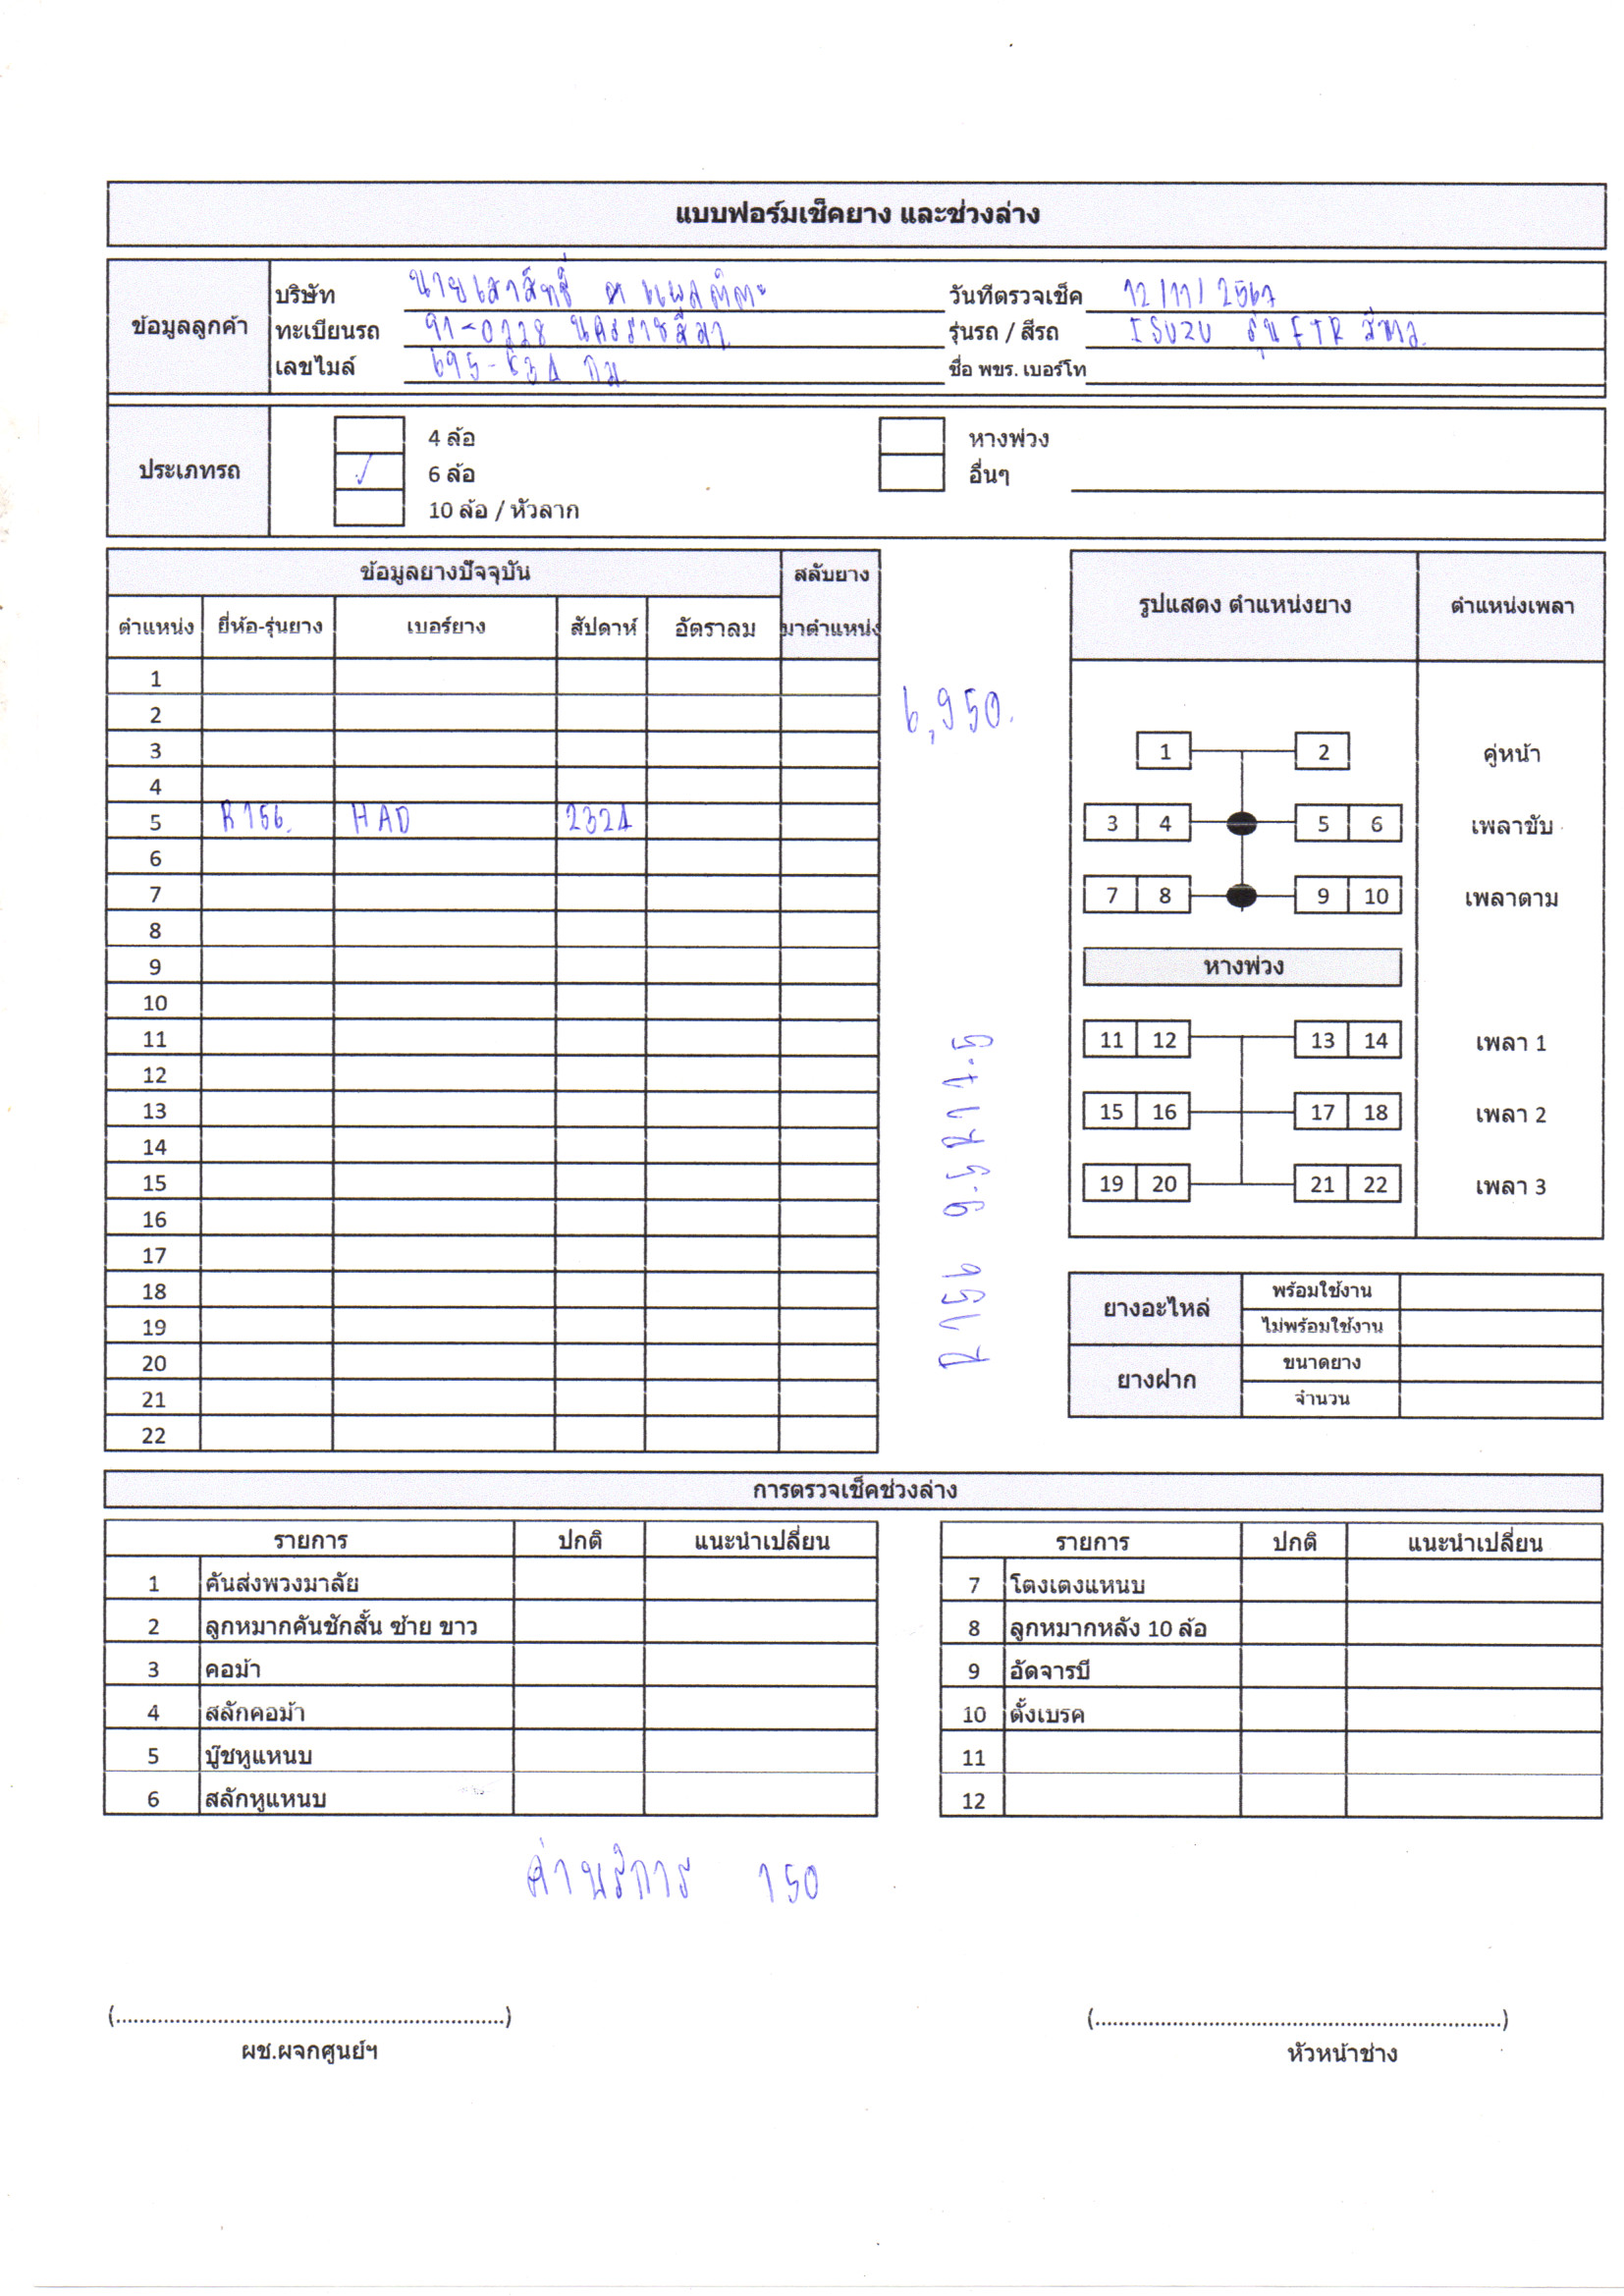 แบบฟอร์มเช็คยาง และช่วงล่าง
ข้อมูลลูกค้า
บริษัท นาย
วันที่ตรวจเช็ค 12/11/2567
ทะเบียนรถ 91-0228 นครราชสีมา
รุ่นรถ / สีรถ ISUZU รุ่น FTR สีขาว
เลขไมล์ 695-634 กม.
ชื่อ พขร. เบอร์โท
ประเภทรถ
4 ล้อ
หางพ่วง
✓ 6 ล้อ
อื่นๆ
10 ล้อ / หัวลาก
ข้อมูลยางปัจจุบัน สลับยาง
ตำแหน่ง ยี่ห้อ-รุ่นยาง เบอร์ยาง สัปดาห์ อัตราลม มาตำแหน่ง
1
2
3
4
5 R156. HAD 2324
6
7
8
9
10
11
12
13
14
15
16
17
18
19
20
21
22
6,950.
R156 9.5 R17.5
รูปแสดง ตำแหน่งยาง ตำแหน่งเพลา
1 2 คู่หน้า
3 4 5 6 เพลาขับ
7 8 9 10 เพลาตาม
หางพ่วง
11 12 13 14 เพลา 1
15 16 17 18 เพลา 2
19 20 21 22 เพลา 3
ยางอะไหล่ พร้อมใช้งาน
ไม่พร้อมใช้งาน
ยางฝาก ขนาดยาง
จำนวน
การตรวจเช็คช่วงล่าง
รายการ ปกติ แนะนำเปลี่ยน
1 คันส่งพวงมาลัย
2 ลูกหมากคันชักสั้น ซ้าย ขาว
3 คอม้า
4 สลักคอม้า
5 บู๊ชหูแหนบ
6 สลักหูแหนบ
รายการ ปกติ แนะนำเปลี่ยน
7 โตงเตงแหนบ
8 ลูกหมากหลัง 10 ล้อ
9 อัดจารบี
10 ตั้งเบรค
11
12
ค่าบริการ 150
(..................................................................)
(.....................................................................)
ผช.ผจกศูนย์ฯ
หัวหน้าช่าง